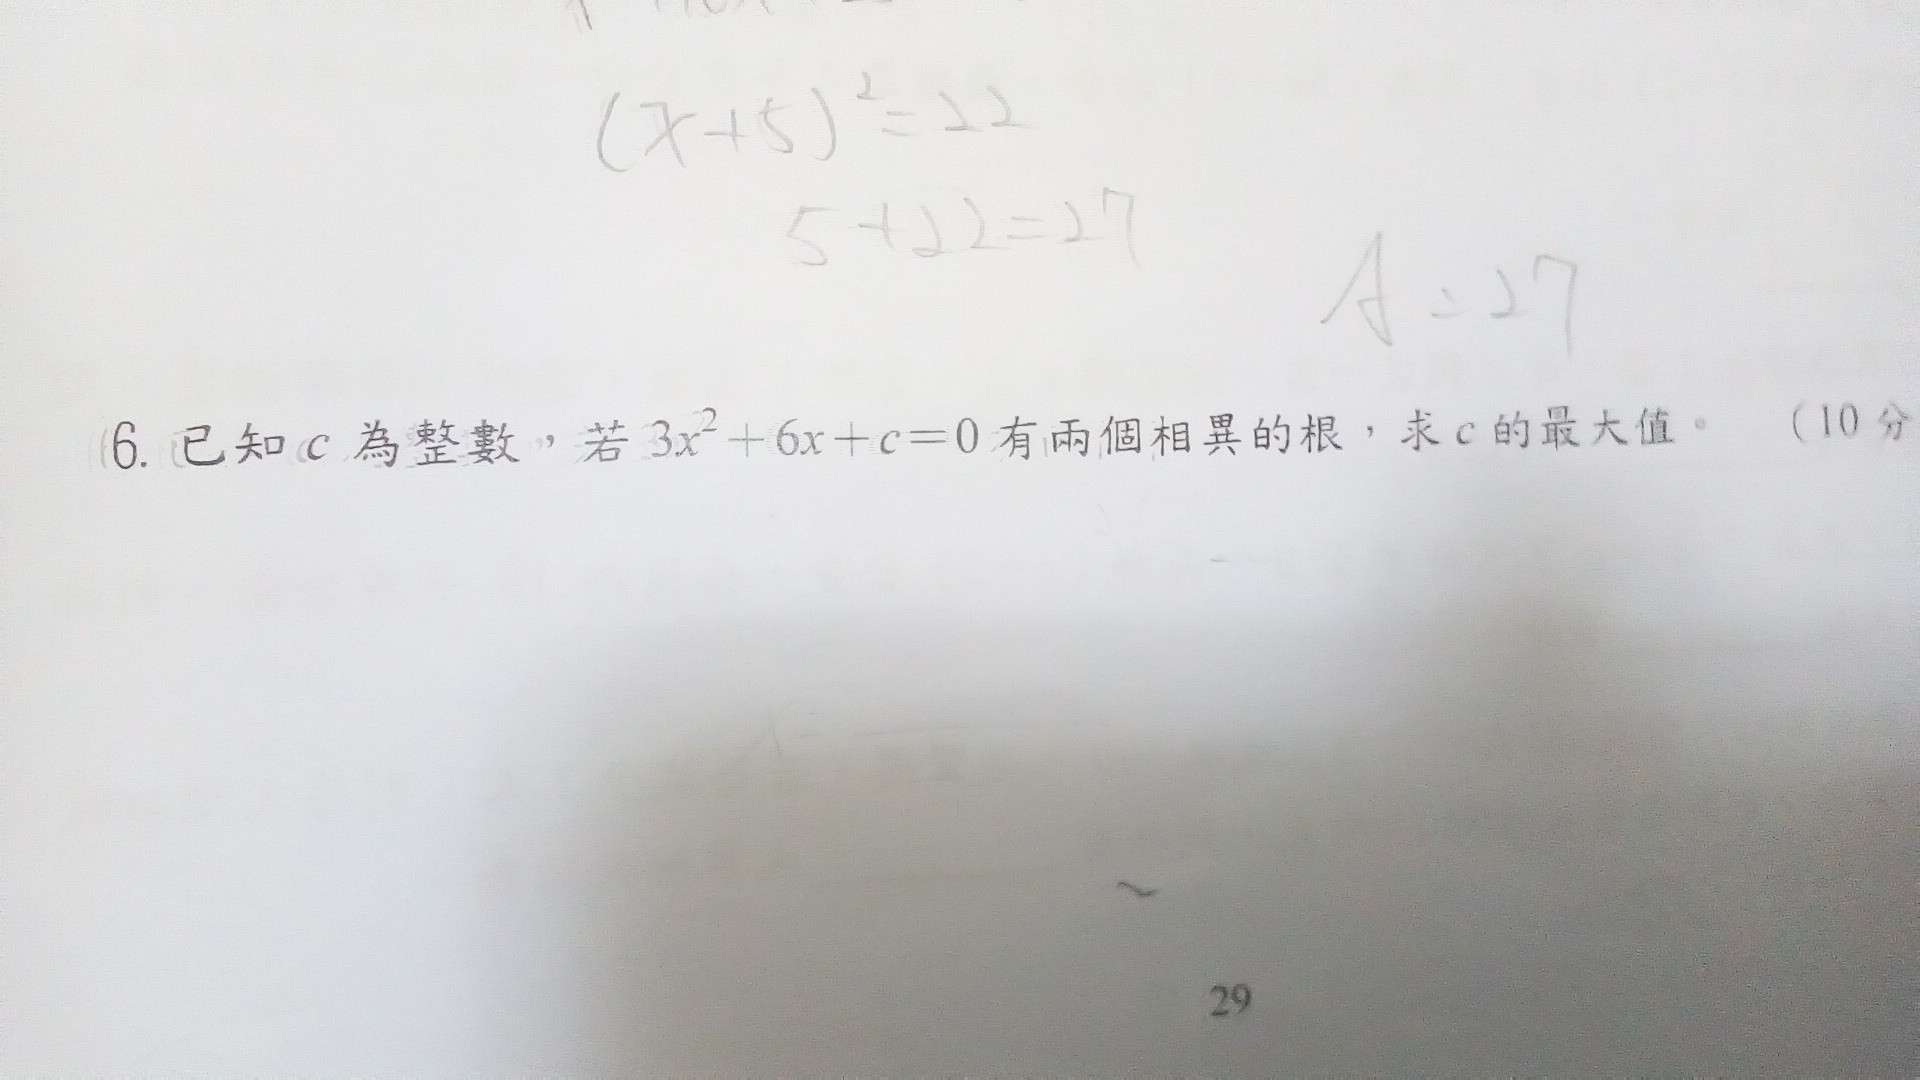 (x+5)²=22
5+22=27
A=27
6. 已知 c 為整數,若 3x²+6x+c=0 有兩個相異的根,求 c 的最大值。 (10 分
29